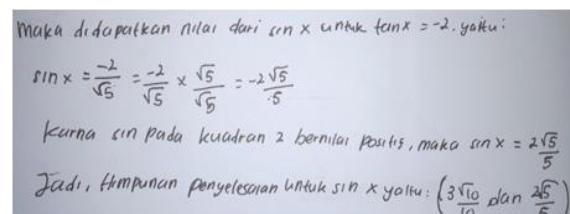 Maka didapatkan nilai dari sin x untuk tan x = -2. yaitu:
sin x = -2/√5 = -2/√5 × √5/√5 = -2√5/5
Karna sin pada kuadran 2 bernilai positif, maka sin x = 2√5/5
Jadi, Himpunan penyelesaian untuk sin x yaitu: (3√10/10 dan 2√5/5)